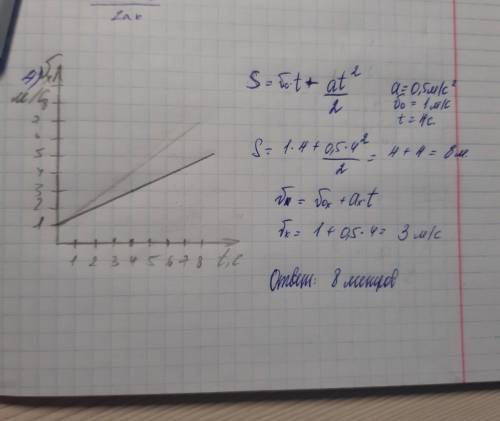 2ax
4)
м/с
7
6
5
4
3
2
1
1 2 3 4 5 6 7 8 t, с
S = v₀·t + at²/2
a = 0,5 м/с²
v₀ = 1 м/с
t = 4 с
S = 1·4 + 0,5·4²/2 = 4 + 4 = 8 м.
vₓ = v₀ₓ + aₓt
vₓ = 1 + 0,5·4 = 3 м/с
Ответ: 8 метров